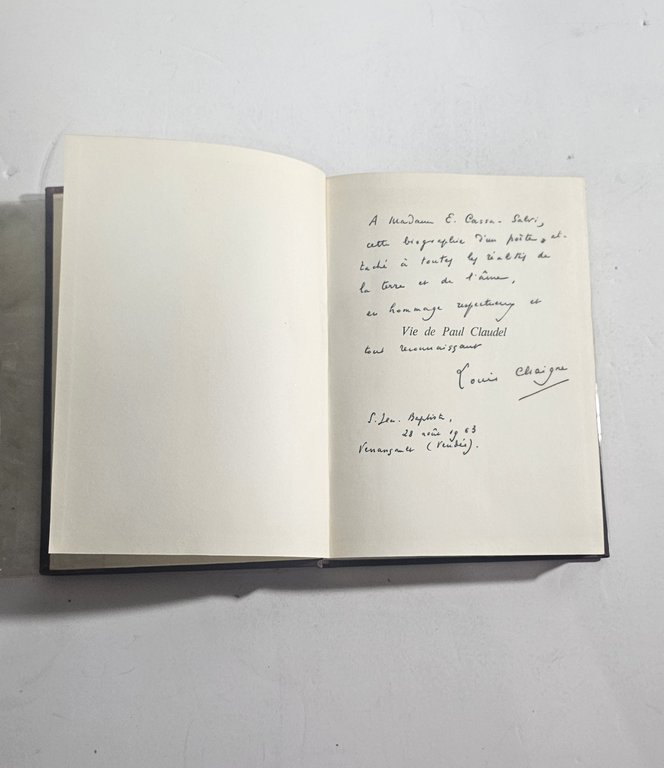 A Madame E. Cassa-Salvi,
cette biographie d'un poète, at-
taché à toutes les réalités de
la terre et de l'âme,
en hommage respectueux et
Vie de Paul Claudel
tout reconnaissant
Louis Chaigne
S. Jea. Baptiste,
28 août 1963
Venansault (Vendée).